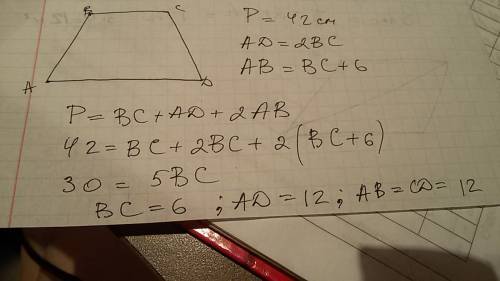 B C
A D
P = 42 cm
AD = 2BC
AB = BC + 6
P = BC + AD + 2AB
42 = BC + 2BC + 2(BC + 6)
30 = 5BC
BC = 6 ; AD = 12 ; AB = CD = 12